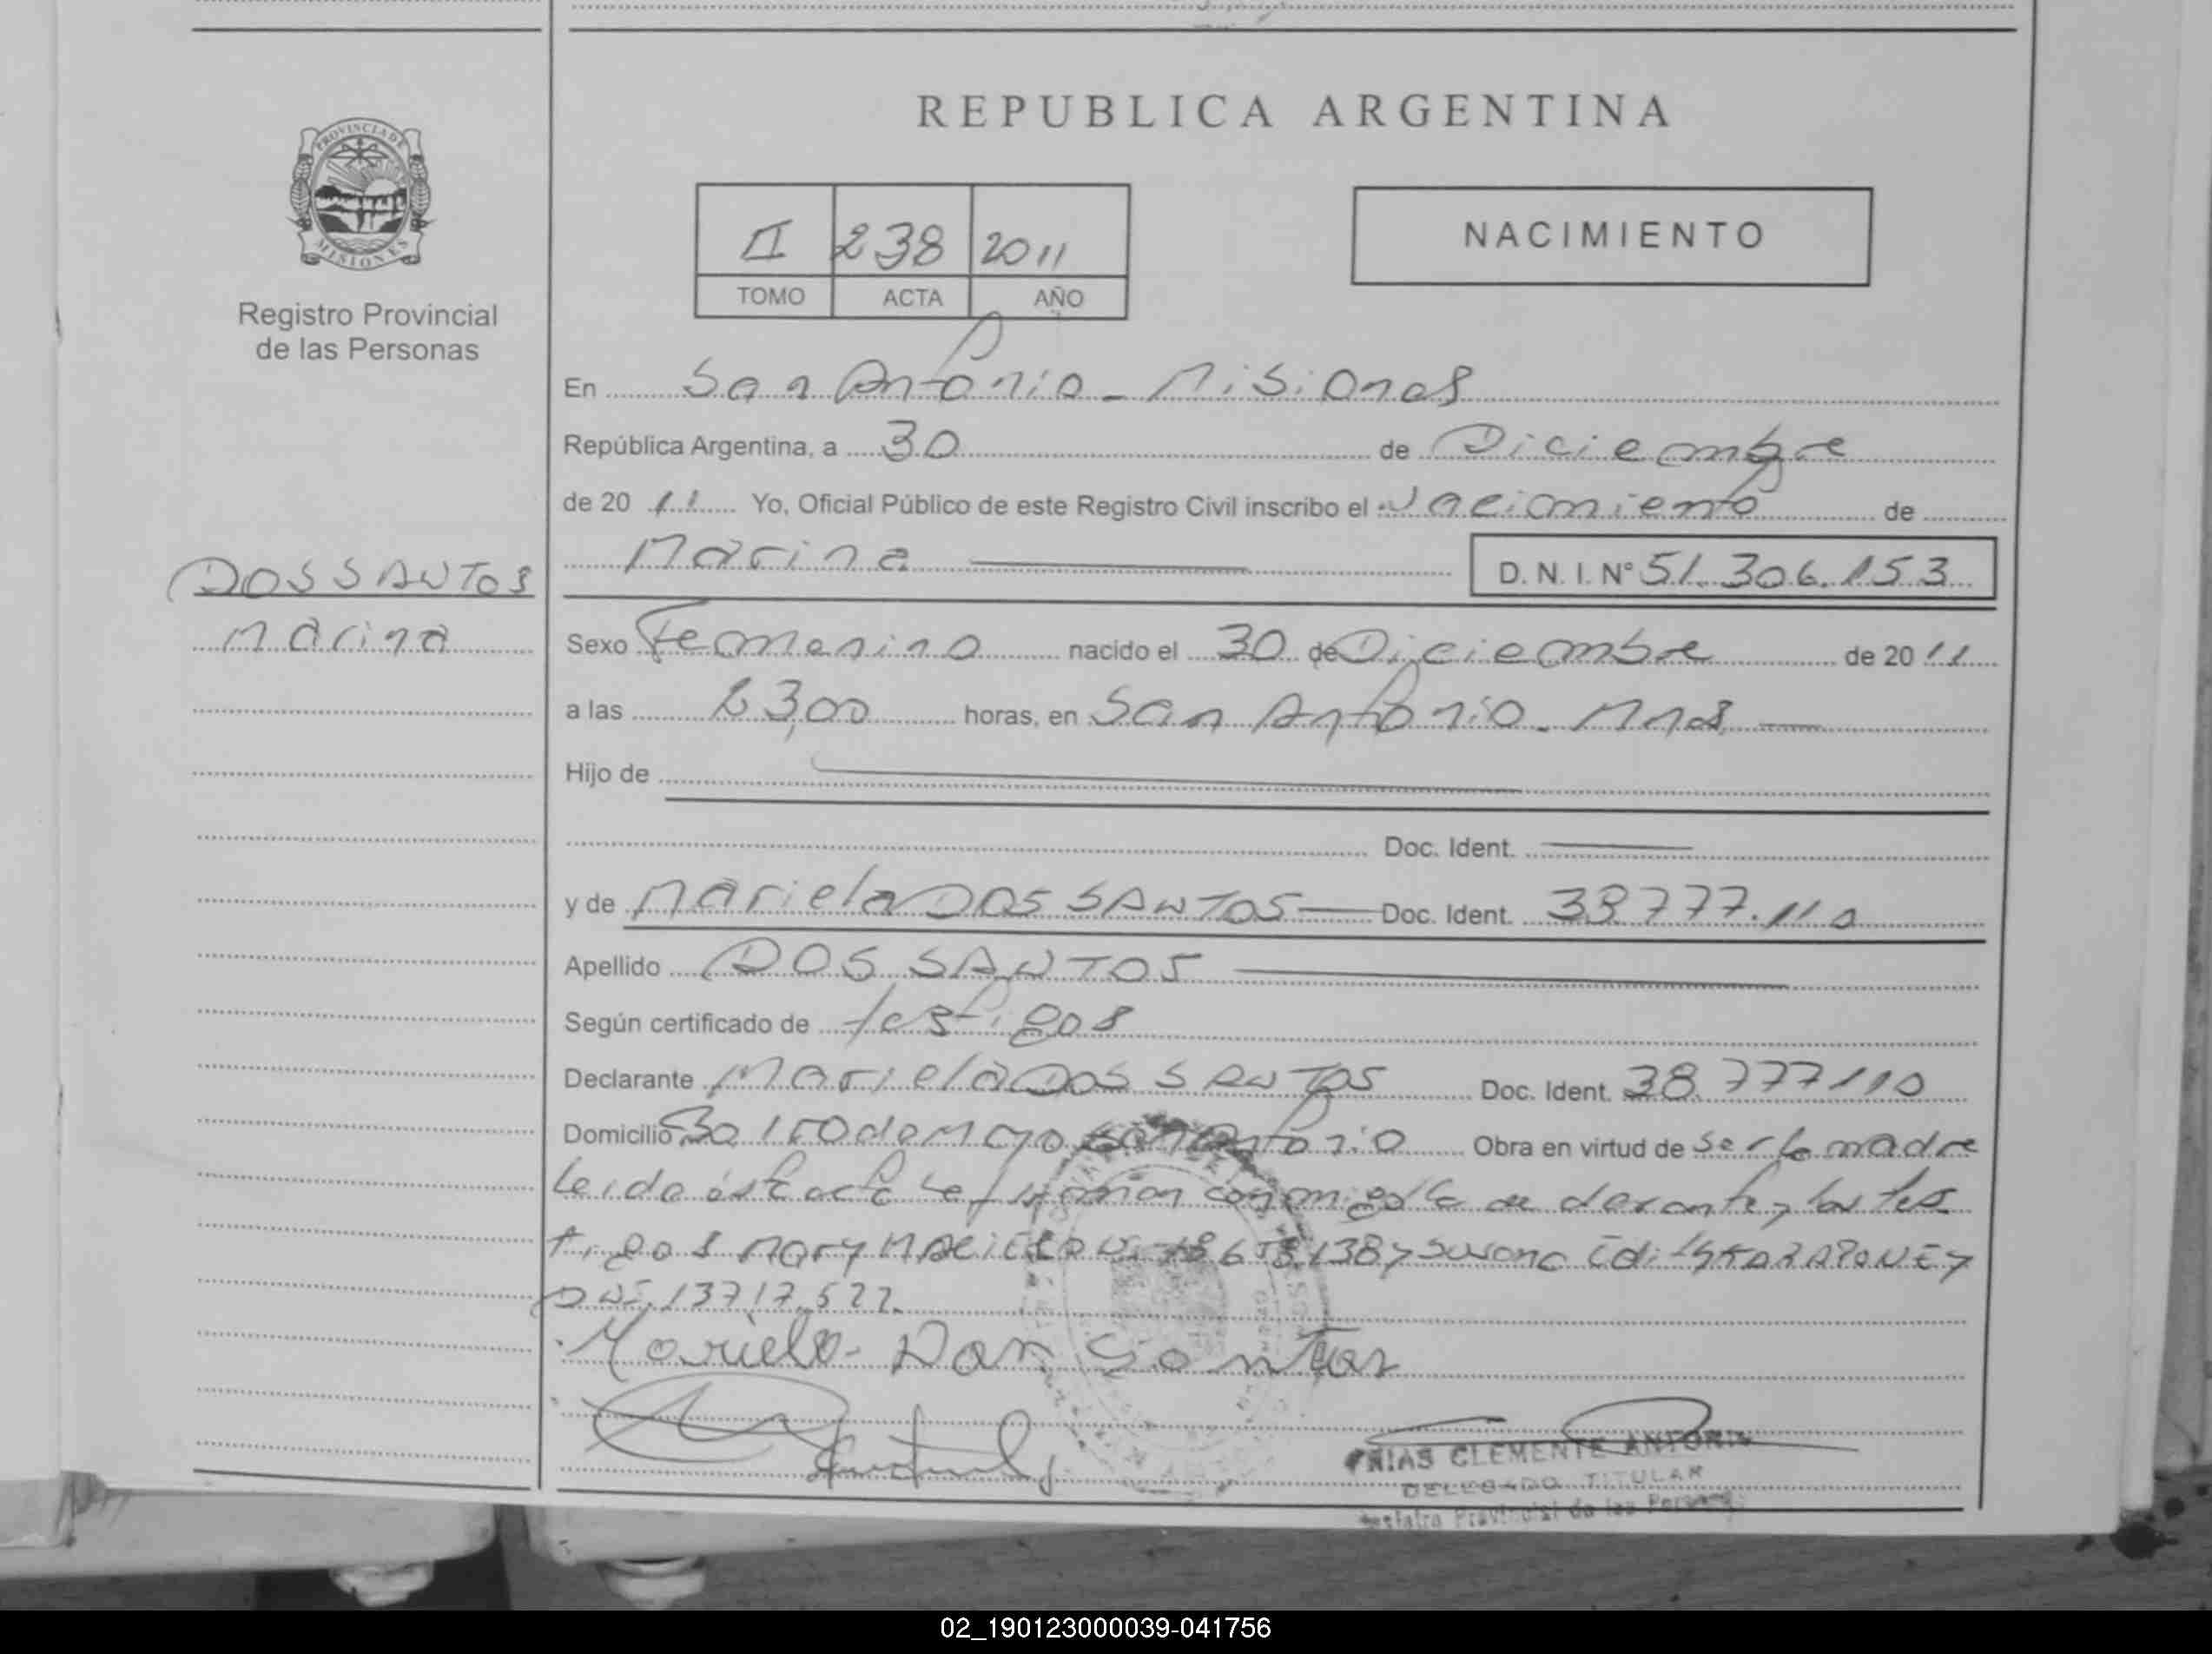 REPUBLICA ARGENTINA
PROVINCIA DE
MISIONES
Registro Provincial
de las Personas
II 238 2011
TOMO ACTA AÑO
NACIMIENTO
En San Antonio - Misiones
República Argentina, a 30 de Diciembre
de 20 11 Yo, Oficial Público de este Registro Civil inscribo el Nacimiento de
Marina D. N. I. Nº 51.306.153
DOS SANTOS
Marina
Sexo Femenino nacido el 30 de Diciembre de 20 11
a las 23,00 horas, en San Antonio - Mnes
Hijo de
Doc. Ident.
y de Mariela DOS SANTOS Doc. Ident. 38.777.110
Apellido DOS SANTOS
Según certificado de testigos
Declarante Mariela DOS SANTOS Doc. Ident. 38.777110
Domicilio San Antonio Obra en virtud de ser la madre
Leida esta acta la firman conmigo la y los tes
tigos Mary 138 y Susana
DNI. 13717.522
Mariela Dos Santos
FRIAS CLEMENTE ANTONIO
DELEGADO TITULAR
Registro Provincial de las Personas
02_190123000039-041756